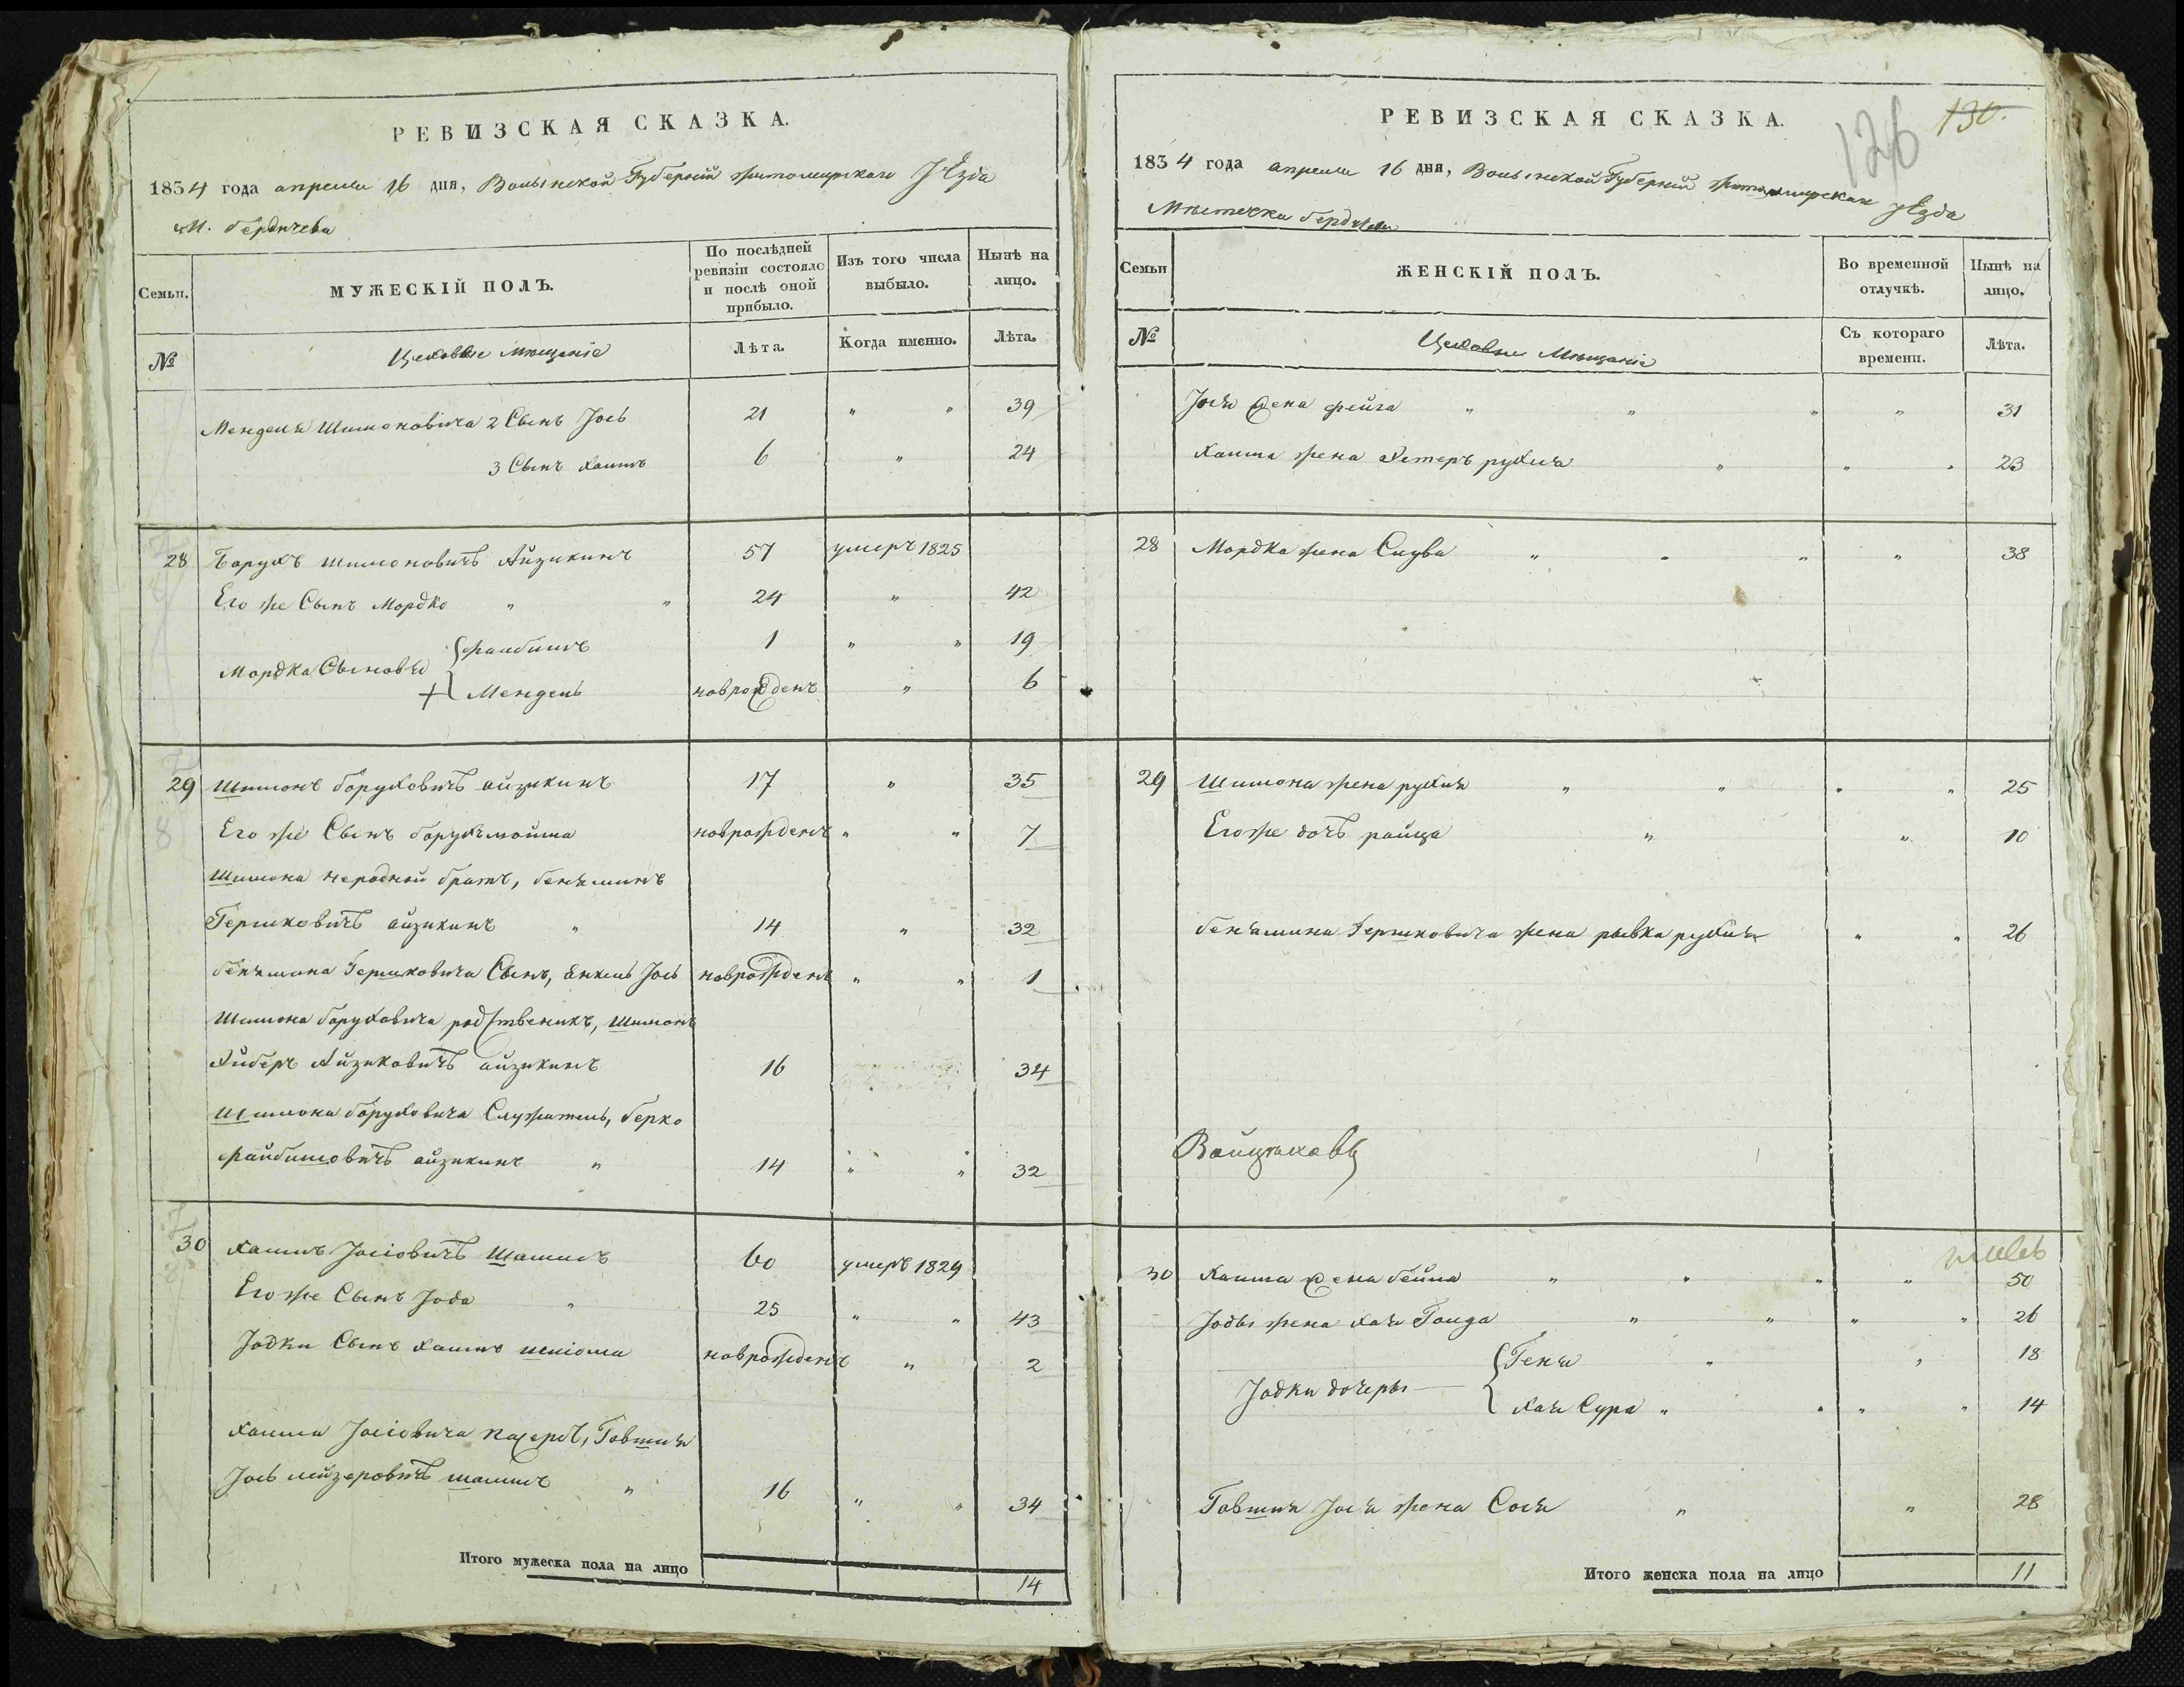 РЕВИЗСКАЯ СКАЗКА.
1834 года апреля 16 дня, Волынской Губернии житомирскаго Уѣзда
М. бердичева
Семьи.
МУЖЕСКІЙ ПОЛЪ.
По послѣдней ревизіи состояло и послѣ оной прибыло.
Изъ того числа выбыло.
Нынѣ на лицо.
№
Цеховые мещаніе
Лѣта.
Когда именно.
Лѣта.
Менделя Шимоновича 2 Сынъ Іось 21 " " 39
3 Сынъ Хаимъ 6 " 24
28 Борухъ шимоновичъ Айзикинъ 57 умеръ 1825
Его же Сынъ Мордко " " 24 " 42
Мордка Сыновья
файбишъ 1 " " 19
+ Мендель новрожденъ " 6
29 Шимонъ боруховичъ айзикинъ 17 " 35
Его же Сынъ борухъ мойша новрожденъ " " 7
Шимона неродной братъ, беньяминъ
Гершковичъ айзикинъ " 14 " 32
беньямина Гершковича Сынъ, янкель Іось новрожденъ " " 1
Шимона боруховича родственикъ, Шимонъ
Либеръ Айзиковичъ айзикинъ 16 34
Шимона боруховича Служитель, берко
файбишовичъ айзикинъ " 14 " " 32
30 Хаимъ Іосіовичъ Шамисъ 60 умеръ 1829
Его же Сынъ Іода " 25 " " 43
Іодки Сынъ Хаимъ шліома новрожденъ " 2
Хаима Іосіовича пасербъ, Говшія
Іось лейзеровичъ шамисъ " 16 " " 34
Итого мужеска пола на лицо 14
126 130.
РЕВИЗСКАЯ СКАЗКА.
1834 года апреля 16 дня, Волынской Губерніи житомирскаго уѣзда
Мѣстечка бердичева
Семьи
ЖЕНСКІЙ ПОЛЪ.
Во временной отлучкѣ.
Нынѣ на лицо.
№
Цеховые Мѣщаніе
Съ котораго времени.
Лѣта.
Іося жена фейга " " " " 31
Хаима жена Эстеръ рухля " " " 23
28 Мордка жена Слува " " " " 38
29 Шимона жена рухля " " " " 25
Егоже дочь райца " " 10
беньямина Гершковича жена рывка рухля " " 26
30 Хаима жена бейла " " " " 50
Іоды жена Хая Голда " " " " 26
Іодки дочеры
Геня " " 18
Хая Сура " " " " 14
Говшія Іося жена Сося " " 28
Итого женска пола на лицо 11